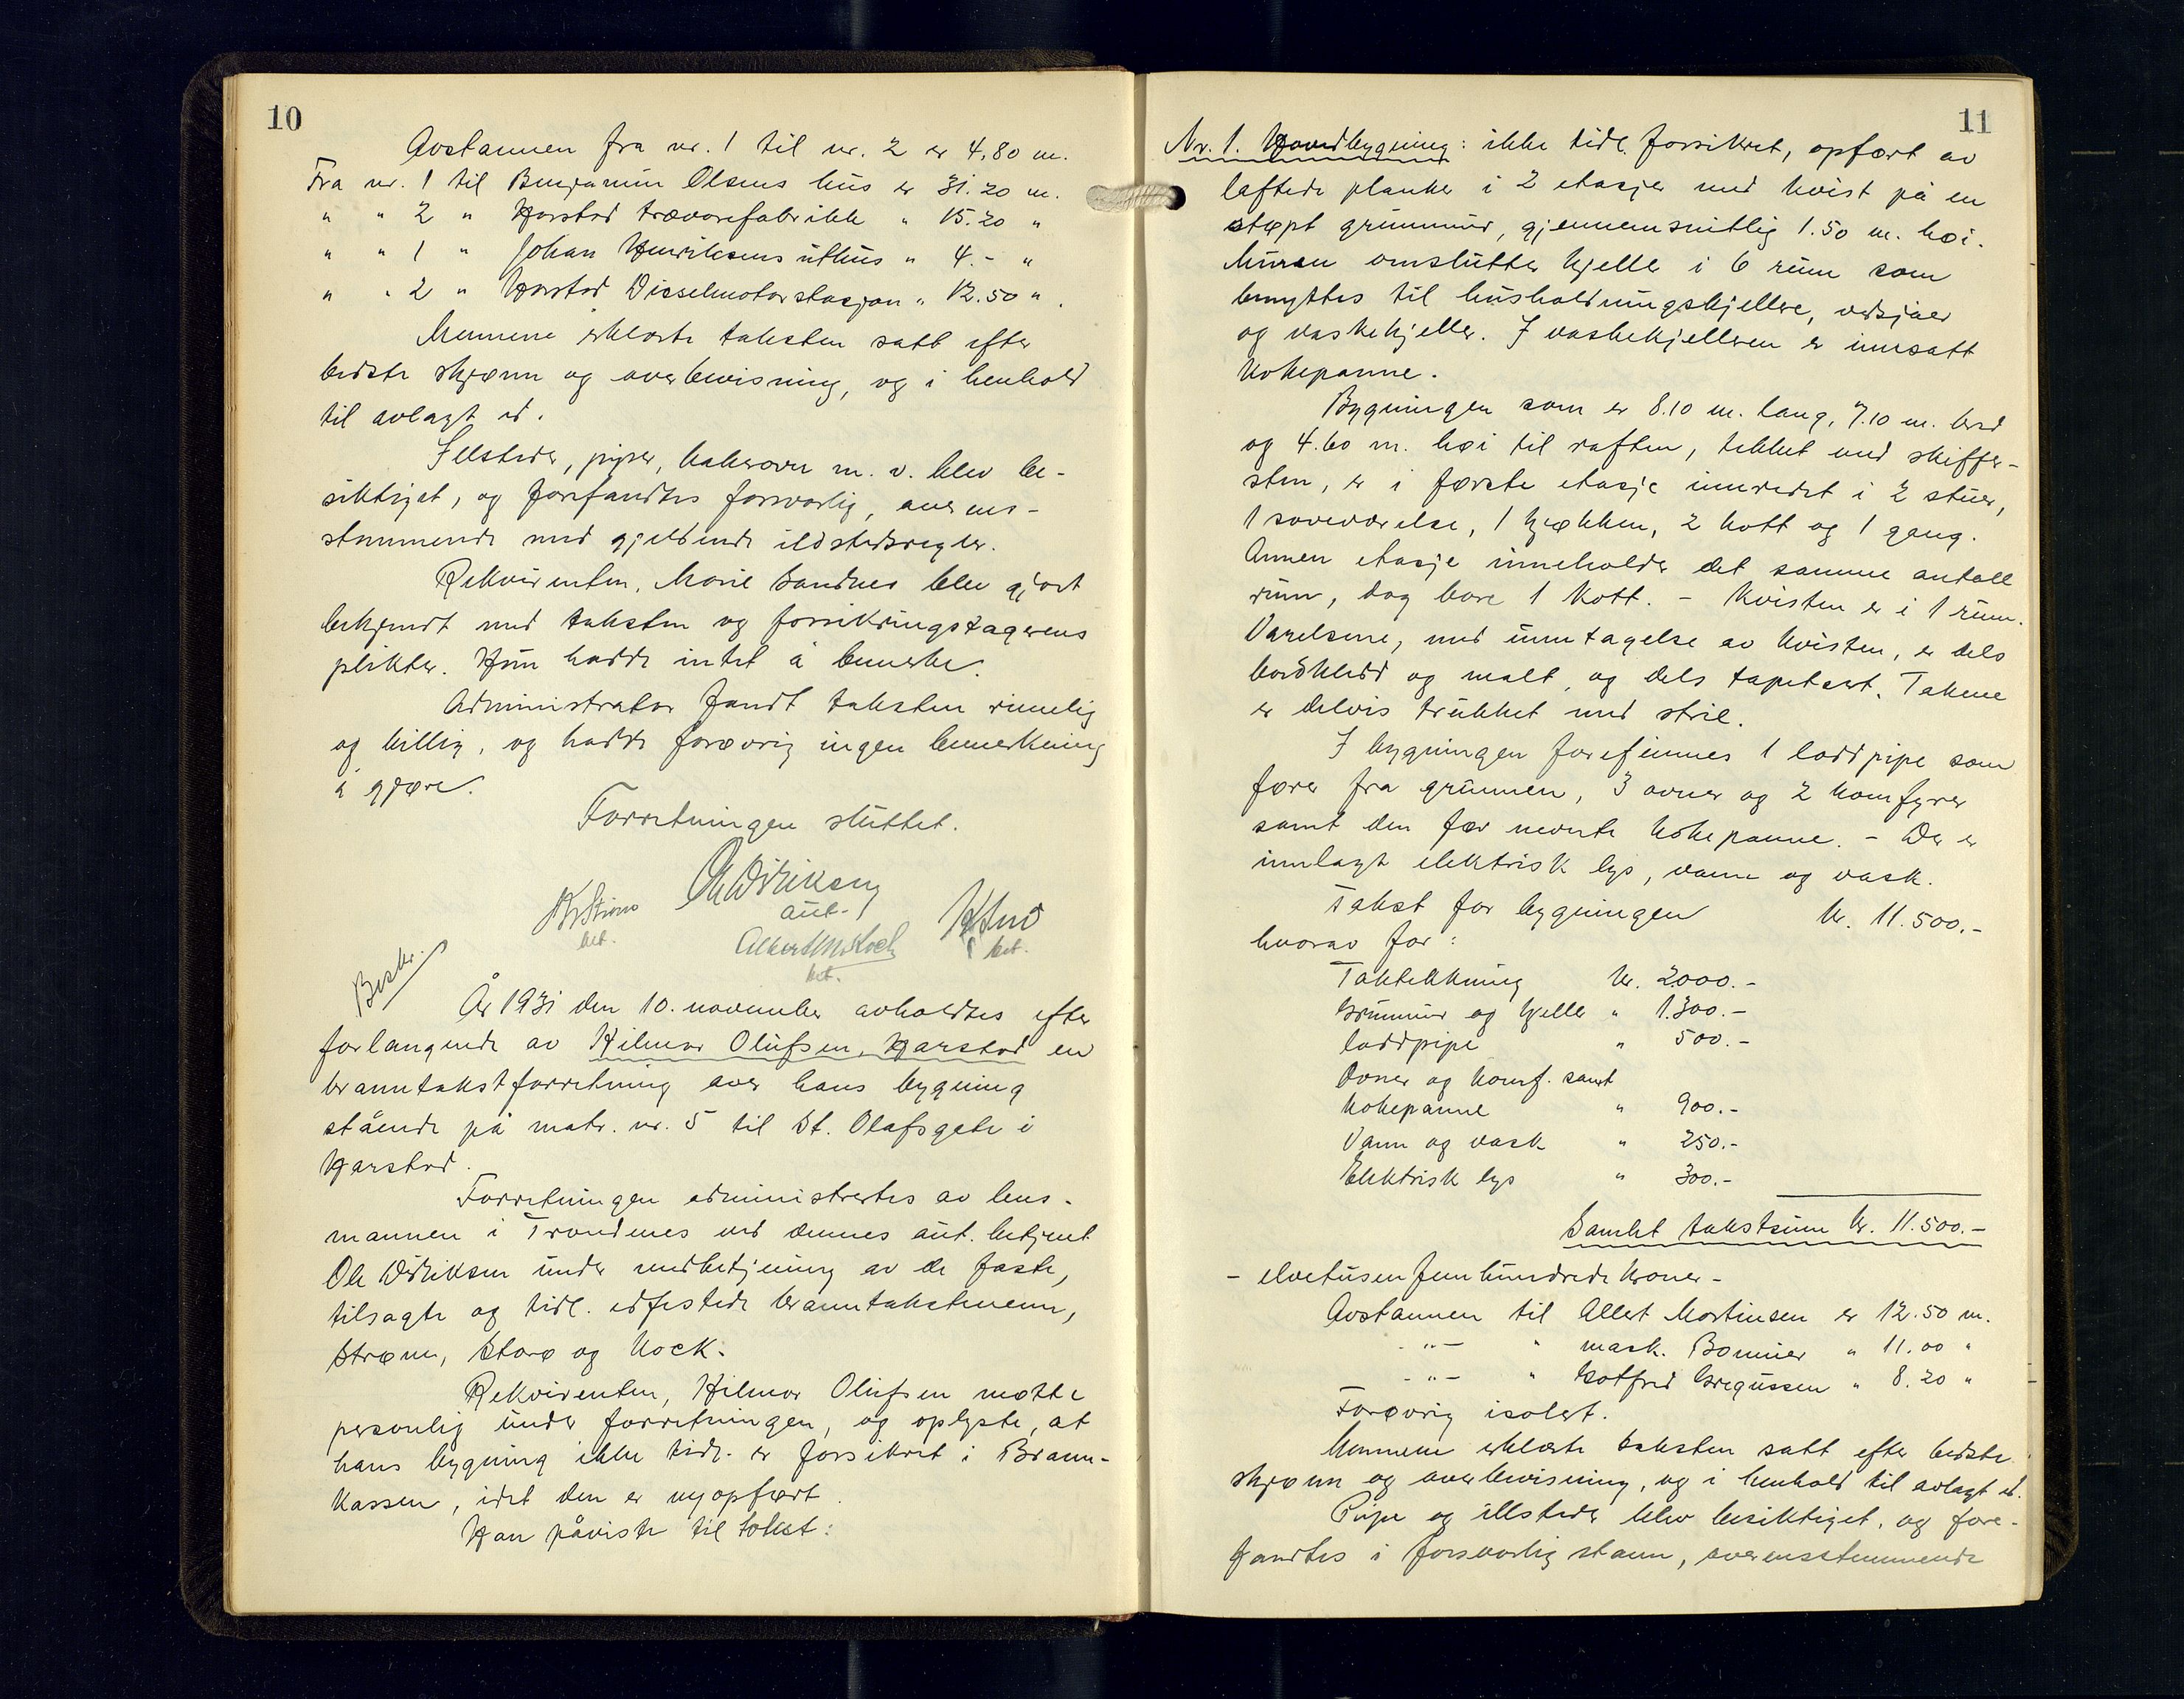 10
Avstannen fra nr. 1 til nr. 2 er 4,80 m.
Fra nr. 1 til Benjamin Olsens hus er 31.20 m.
" " 2 " Harstad trævarefabrikk " 15.20 "
" " 1 " Johan Henriksens uthus " 4.- "
" " 2 " Harstad Dieselmotorstasjon " 12.50 ".
Mennene erklærte taksten satt efter
bedste skjønn og overbevisning, og i henhold
til avlagt ed.
Illsteder, piper, kakeovn m. v. blev be-
siktiget, og forefandtes forsvarlig, overens-
stemmende med gjeldende ildstedsregler.
Rekvirenten, Marie Sandnes blev gjort
bekjendt med taksten og forsikringstagerens
plikter. Hun hadde intet å bemerke.
Administrator fandt taksten rimelig
og billig, og hadde forøvrig ingen bemerkning
å gjøre.
Forretningen sluttet.
Ole Didriksen
aut.
Albert M. Kock
bet.
bet.
bet.
Beskr.
År 1931 den 10. november avholdtes efter
forlangende av Hilmar Olufsen, Harstad en
branntakstforretning over hans bygning
stående på matr. nr. 5 til St. Olafsgate i
Harstad.
Forretningen administrertes av lens-
mannen i Trondenes ved dennes aut. betjent
Ole Didriksen under medbetjening av de faste,
tilsagte og tidl. edfestede branntakstmenn,
Strøm, Storø og Kock.
Rekvirenten, Hilmar Olufsen møtte
personlig under forretningen, og oplyste, at
hans bygning ikke tidl. er forsikret i Brann-
kassen, idet den er nyopført.
Han påviste til takst:
11
Nr. 1. Hovedbygning: ikke tidl. forsikret, opført av
laftede planker i 2 etasjer med kvist på en
støpt grunnmur, gjennemsnitlig 1.50 m. høi.
Muren omslutter kjeller i 6 rum som
benyttes til husholdningskjellere, vedsjåer
og vaskekjeller. I vaskekjelleren er innsatt
kokepanne.
Bygningen som er 8.10 m. lang, 7.10 m. bred
og 4.60 m. høi til raften, tekket med skiffer-
sten, er i første etasje innredet i 2 stuer,
1 soveværelse, 1 kjøkken, 2 kott og 1 gang.
Annen etasje inneholder det samme antall
rum, dog bare 1 kott. - Kvisten er i 1 rum.
Værelsene, med unntagelse av kvisten, er dels
bordkledd og malt, og dels tapetsert. Takene
er delvis trukket med strie.
I bygningen forefinnes 1 loddpipe som
fører fra grunnen, 3 ovner og 2 komfyrer
samt den før nevnte kokepanne. - Der er
innlagt elektrisk lys, vann og vask.
Takst for bygningen kr. 11.500.-
hvorav for:
Taktekkning kr. 2000.-
Grunnmur og kjeller " 1.300.-
Loddpipe " 500.-
Ovner og komf. samt
kokepanne " 900.-
Vann og vask " 250.-
Elektrisk lys " 300.-
Samlet takstsum kr. 11.500.-
- elvetusen femhundrede kroner -
Avstannen til Allert Martinsen er 12.50 m.
- " - " mask. Bomiier " 11.00 "
- " - " Gotfred Gregussen " 8.20 "
Forøvrig isolert.
Mennene erklærte taksten satt efter bedste
skjønn og overbevisning, og i henhold til avlagt ed.
Pipe og illsteder blev besiktiget, og fore-
fandtes i forsvarlig stann, overensstemmende